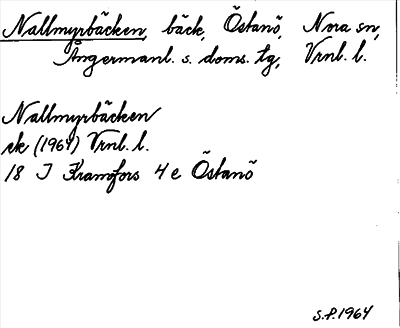 Nallmyrbäcken, bäck, Östanö, Nora sn,
Ångermanl. s. doms. tg, Vrnl. l.
Nallmyrbäcken
ek (1964) Vrnl. l.
18 J Kramfors 4 e Östanö
S.P. 1964